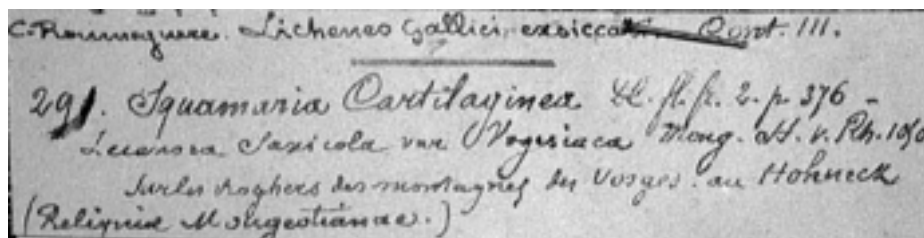 C. Roumeguere. Lichenes Gallici exsiccati. Cent. III.
291. Squamaria Cartilaginea DC. fl. fr. 2. p. 376 -
Lecanora Saxicola var Vogesiaca Moug. St. v. Rh.
Sur les Rochers des montagnes des Vosges. au Hohneck
(Reliquiæ Mougeotianae.)